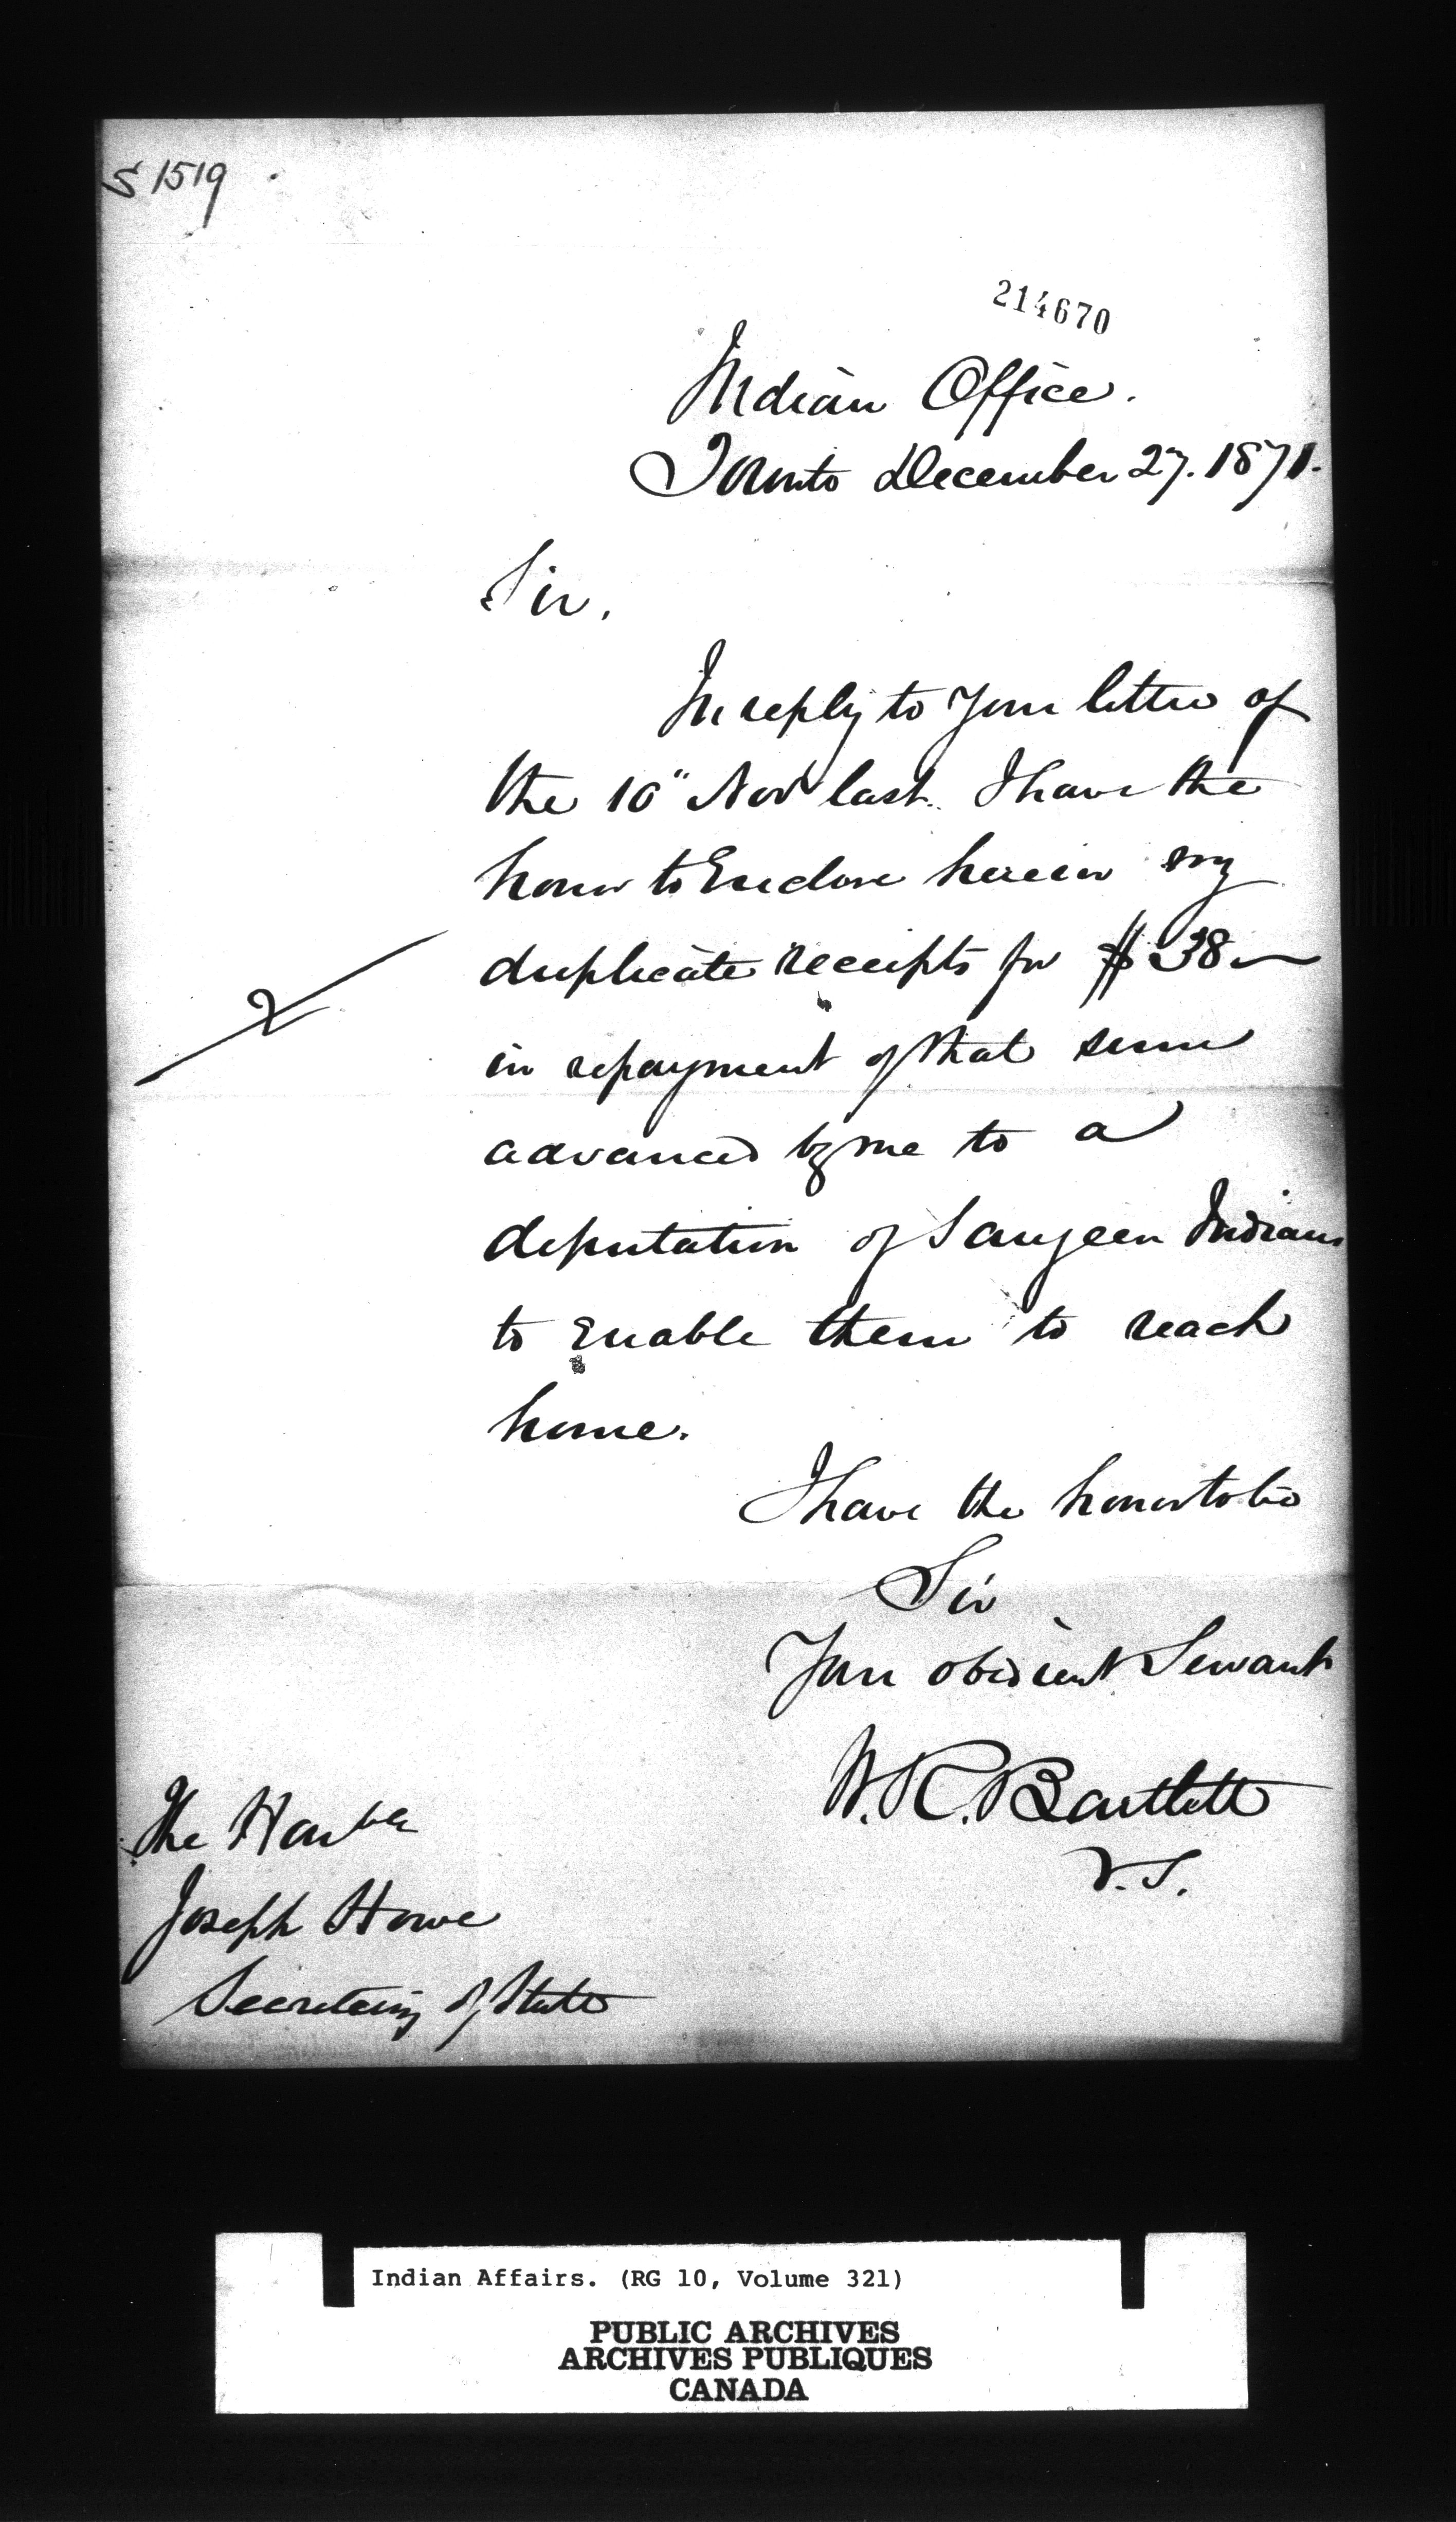 S 1519
214670
Indian Office.
Toronto December 27. 1871.
Sir,
In reply to your letter of
the 10" Nov last. I have the
honor to Enclose herein my
duplicate receipts for $38—
2
in repayment of that sum
advanced by me to a
deputation of Saugeen Indians
to Enable them to reach
home.
I have the honor to be
Sir
Your obedient Servant
W. R. Bartlett
V.S.
The Honble
Joseph Howe
Secretary of State
Indian Affairs. (RG 10, Volume 321)
PUBLIC ARCHIVES
ARCHIVES PUBLIQUES
CANADA